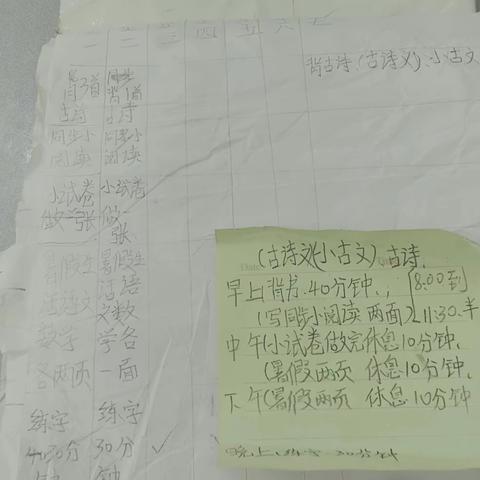 一 二 三 四 五 六 七
背古诗(古诗文)、小古文
背3道
古诗
同步小
阅读
小试卷
做一张
暑假生
活语文
数学
各两页
练字
30分
钟
同步
背1道
古诗
同步小
阅读
小试卷
做一
张
暑假生
活语
文数
学各
一面
练字
30分
钟
(古诗文)(小古文)古诗.
早上背书40分钟.,
8:00到
11:30.半
(写同步小阅读两面)
中午(小试卷做完休息10分钟.
(暑假两页 休息10分钟.
下午(暑假两页 休息10分钟
晚上练字 30分钟